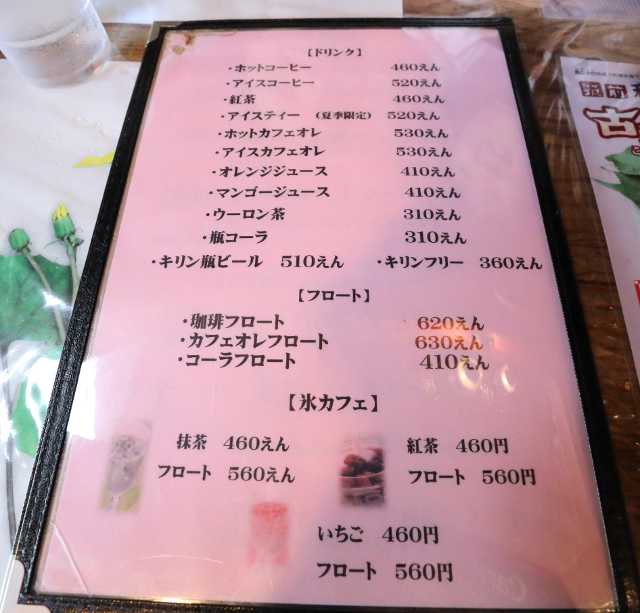 【ドリンク】
・ホットコーヒー 460えん
・アイスコーヒー 520えん
・紅茶 460えん
・アイスティー （夏季限定） 520えん
・ホットカフェオレ 530えん
・アイスカフェオレ 530えん
・オレンジジュース 410えん
・マンゴージュース 410えん
・ウーロン茶 310えん
・瓶コーラ 310えん
・キリン瓶ビール 510えん ・キリンフリー 360えん
【フロート】
・珈琲フロート 620えん
・カフェオレフロート 630えん
・コーラフロート 410えん
【氷カフェ】
抹茶 460えん 紅茶 460円
フロート 560えん フロート 560円
いちご 460円
フロート 560円
古